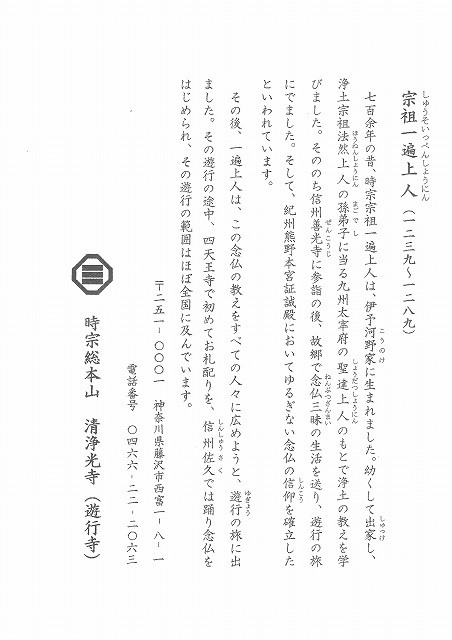 宗祖一遍上人（一二三九～一二八九）
七百余年の昔、時宗宗祖一遍上人は、伊予河野家に生まれました。幼くして出家し、
浄土宗祖法然上人の孫弟子に当る九州太宰府の聖達上人のもとで浄土の教えを学
びました。そののち信州善光寺に参詣の後、故郷で念仏三昧の生活を送り、遊行の旅
にでました。そして、紀州熊野本宮証誠殿においてゆるぎない念仏の信仰を確立した
といわれています。
その後、一遍上人は、この念仏の教えをすべての人々に広めようと、遊行の旅に出
ました。その遊行の途中、四天王寺で初めてお札配りを、信州佐久では踊り念仏を
はじめられ、その遊行の範囲はほぼ全国に及んでいます。
〒二五一－〇〇〇一　神奈川県藤沢市西富一－八－一
電話番号　〇四六六－二二－二〇六三
時宗総本山　清浄光寺（遊行寺）